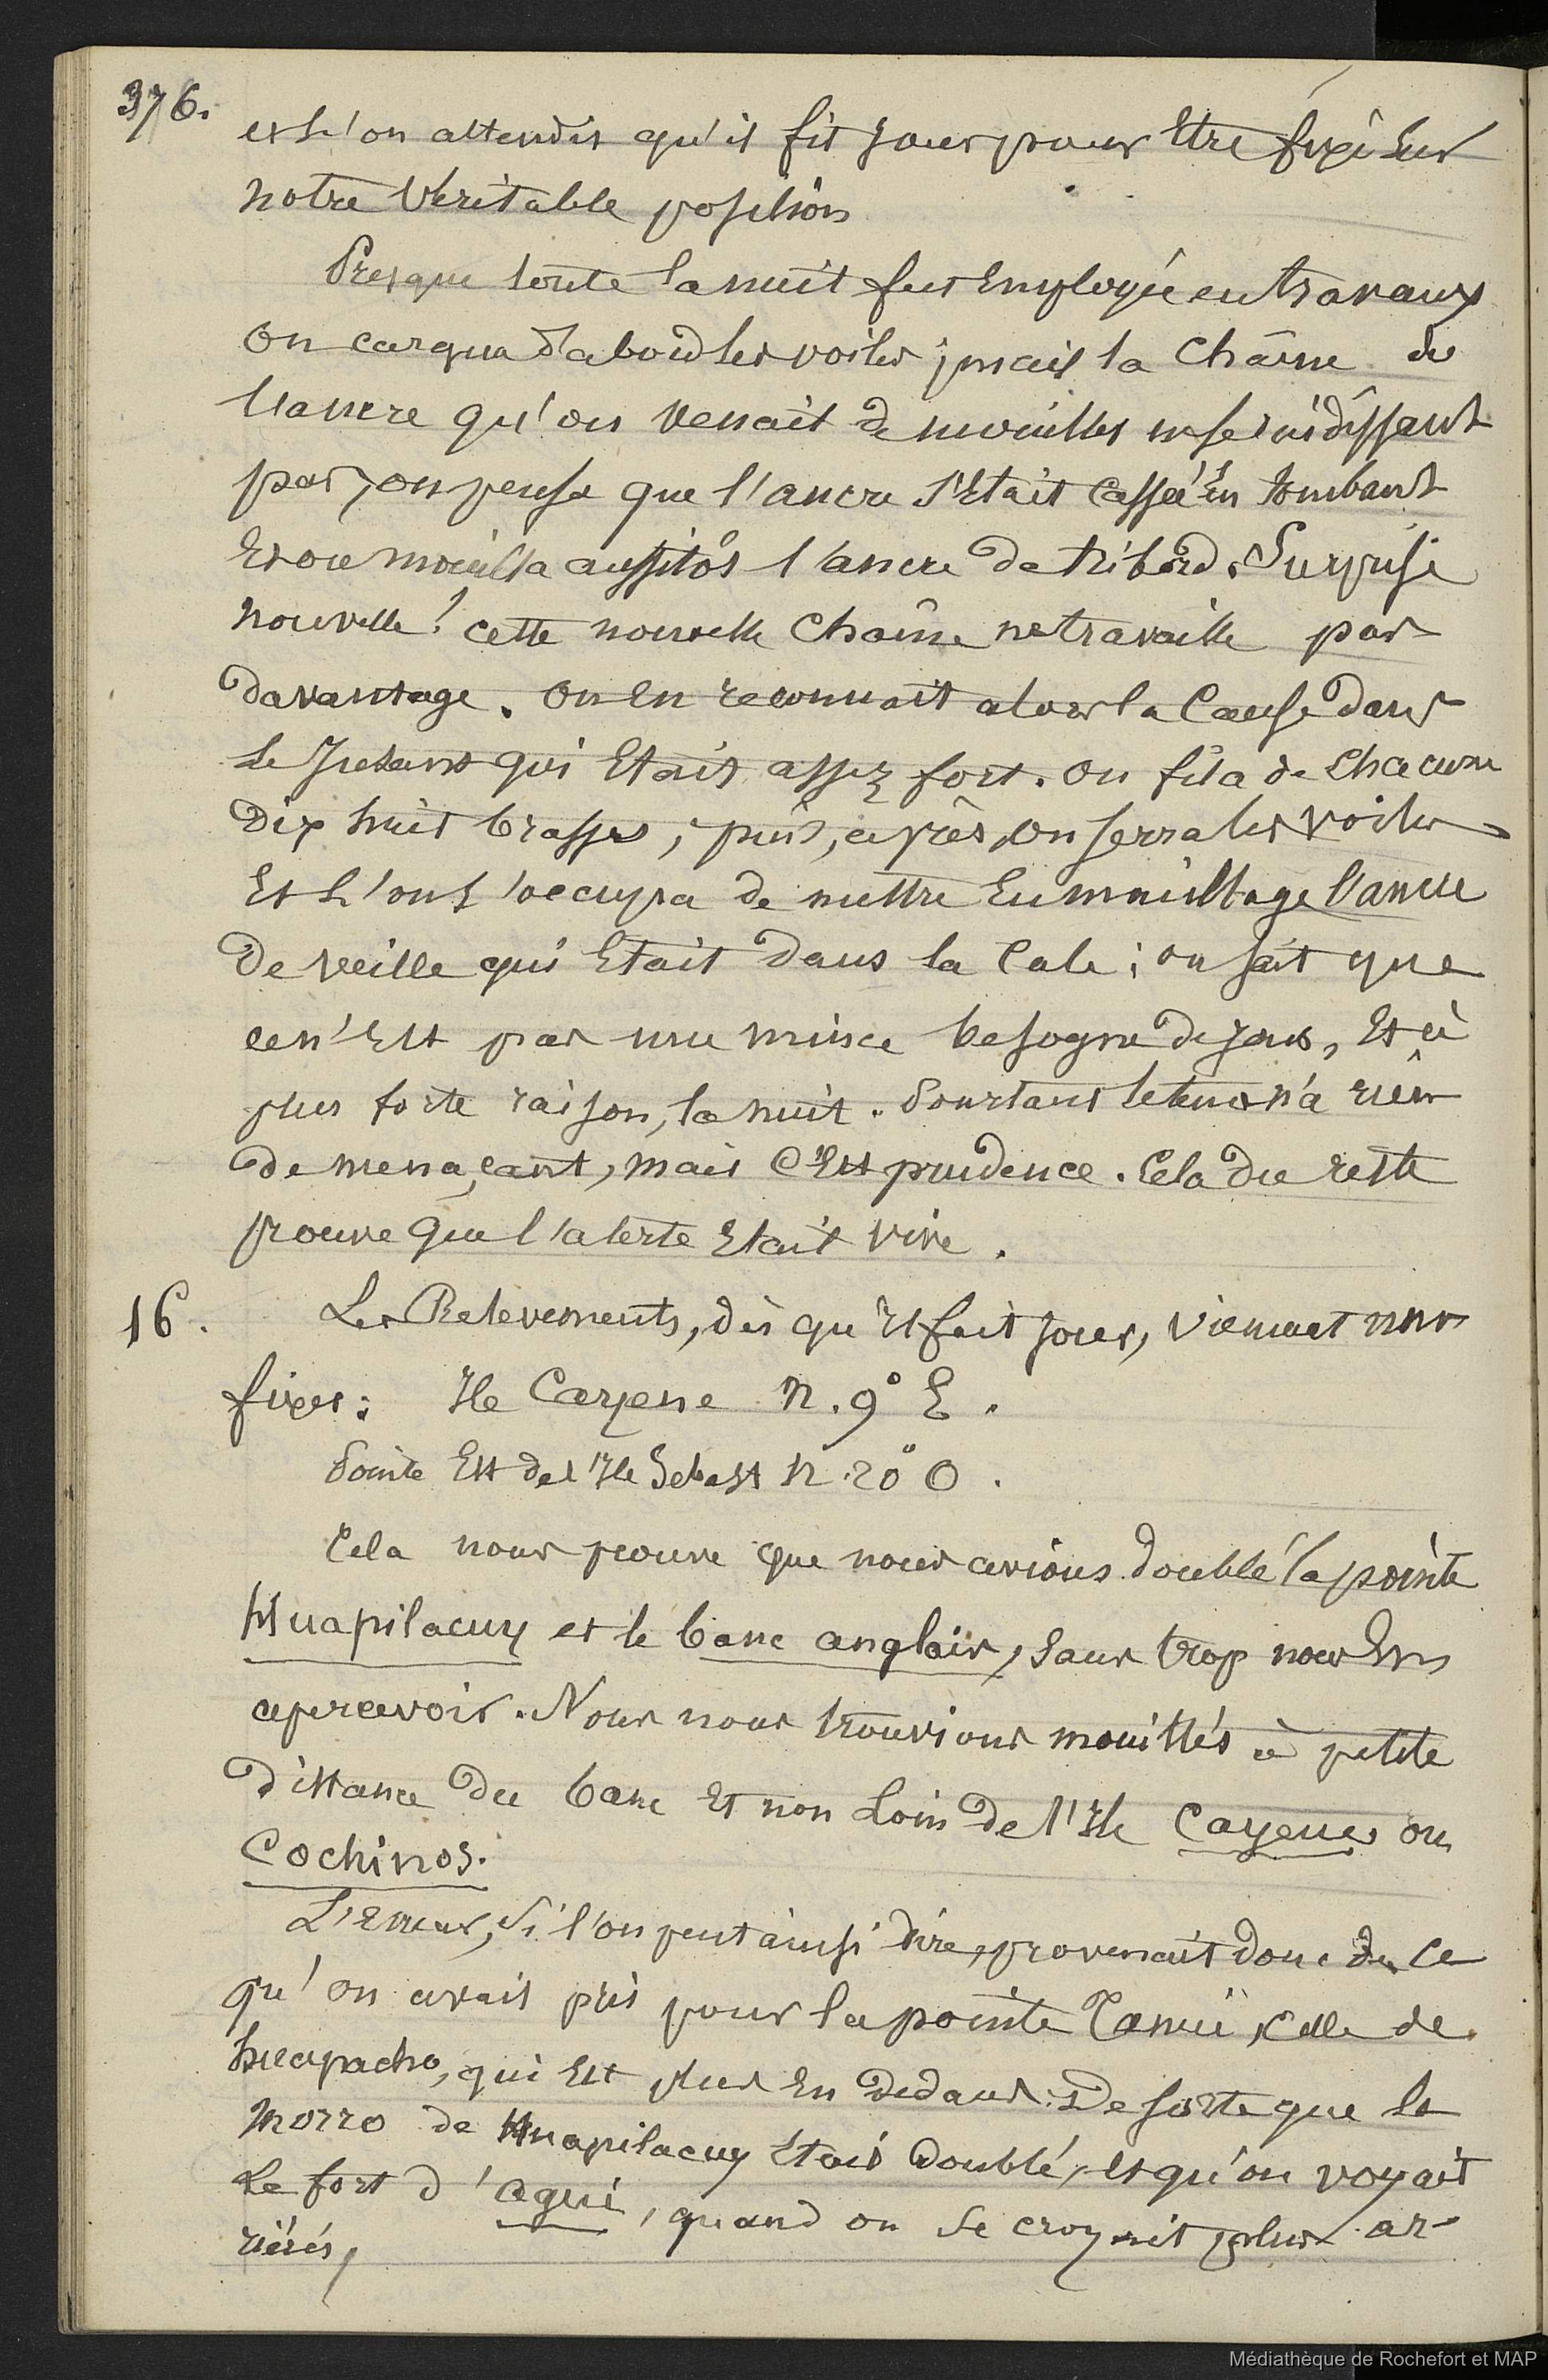 376.
et l'on attendit qu'il fit jour pour être fixé sur
notre véritable position
Presque toute la nuit fut employée en travaux
On cargua d'abord les voiles ; mais la chaîne de
l'ancre qu'on venait de mouiller ne se raidissant
pas, on pensa que l'ancre s'était cassée en tombant
et on mouilla aussitôt l'ancre de tribord. Surprise
nouvelle ! cette nouvelle chaîne ne travaille pas
davantage. On en reconnait alors la cause dans
le Jusant qui était assez fort. On fila de chacune
dix huit brasses ; puis, après, on serra les voiles
et l'on s'occupa de mettre en mouillage l'ancre
de veille qui était dans la cale ; on sait que
ce n'est pas une mince besogne de jour, et à
plus forte raison, la nuit. Pourtant le temps n'a rien
de menaçant, mais c'est prudence. Cela du reste
prouve que l'alerte était vive.
16. Les Relevements, dès qu'il fait jour, viennent nous
fixer : Ile Cayene N. 9° E.
Pointe Est de l'Ile Sebast N. 20° O.
Cela nous prouve que nous avions doublé la pointe
Huapilacuy et le banc anglais, sans trop nous en
apercevoir. Nous nous trouvions mouillés à petite
distance du banc et non loin de l'Ile Cayenes ou
Cochinos.
L'erreur, si l'on peut ainsi dire, provenait donc de ce
qu'on avait pris pour la pointe Tamui, celle de
huapacho, qui est plus en dedans : De sorte que le
Morro de Huapilacuy était doublé, et qu'on voyait
Le fort d'agui, quand on se croyait plus ar-
riérés,
Médiathèque de Rochefort et MAP